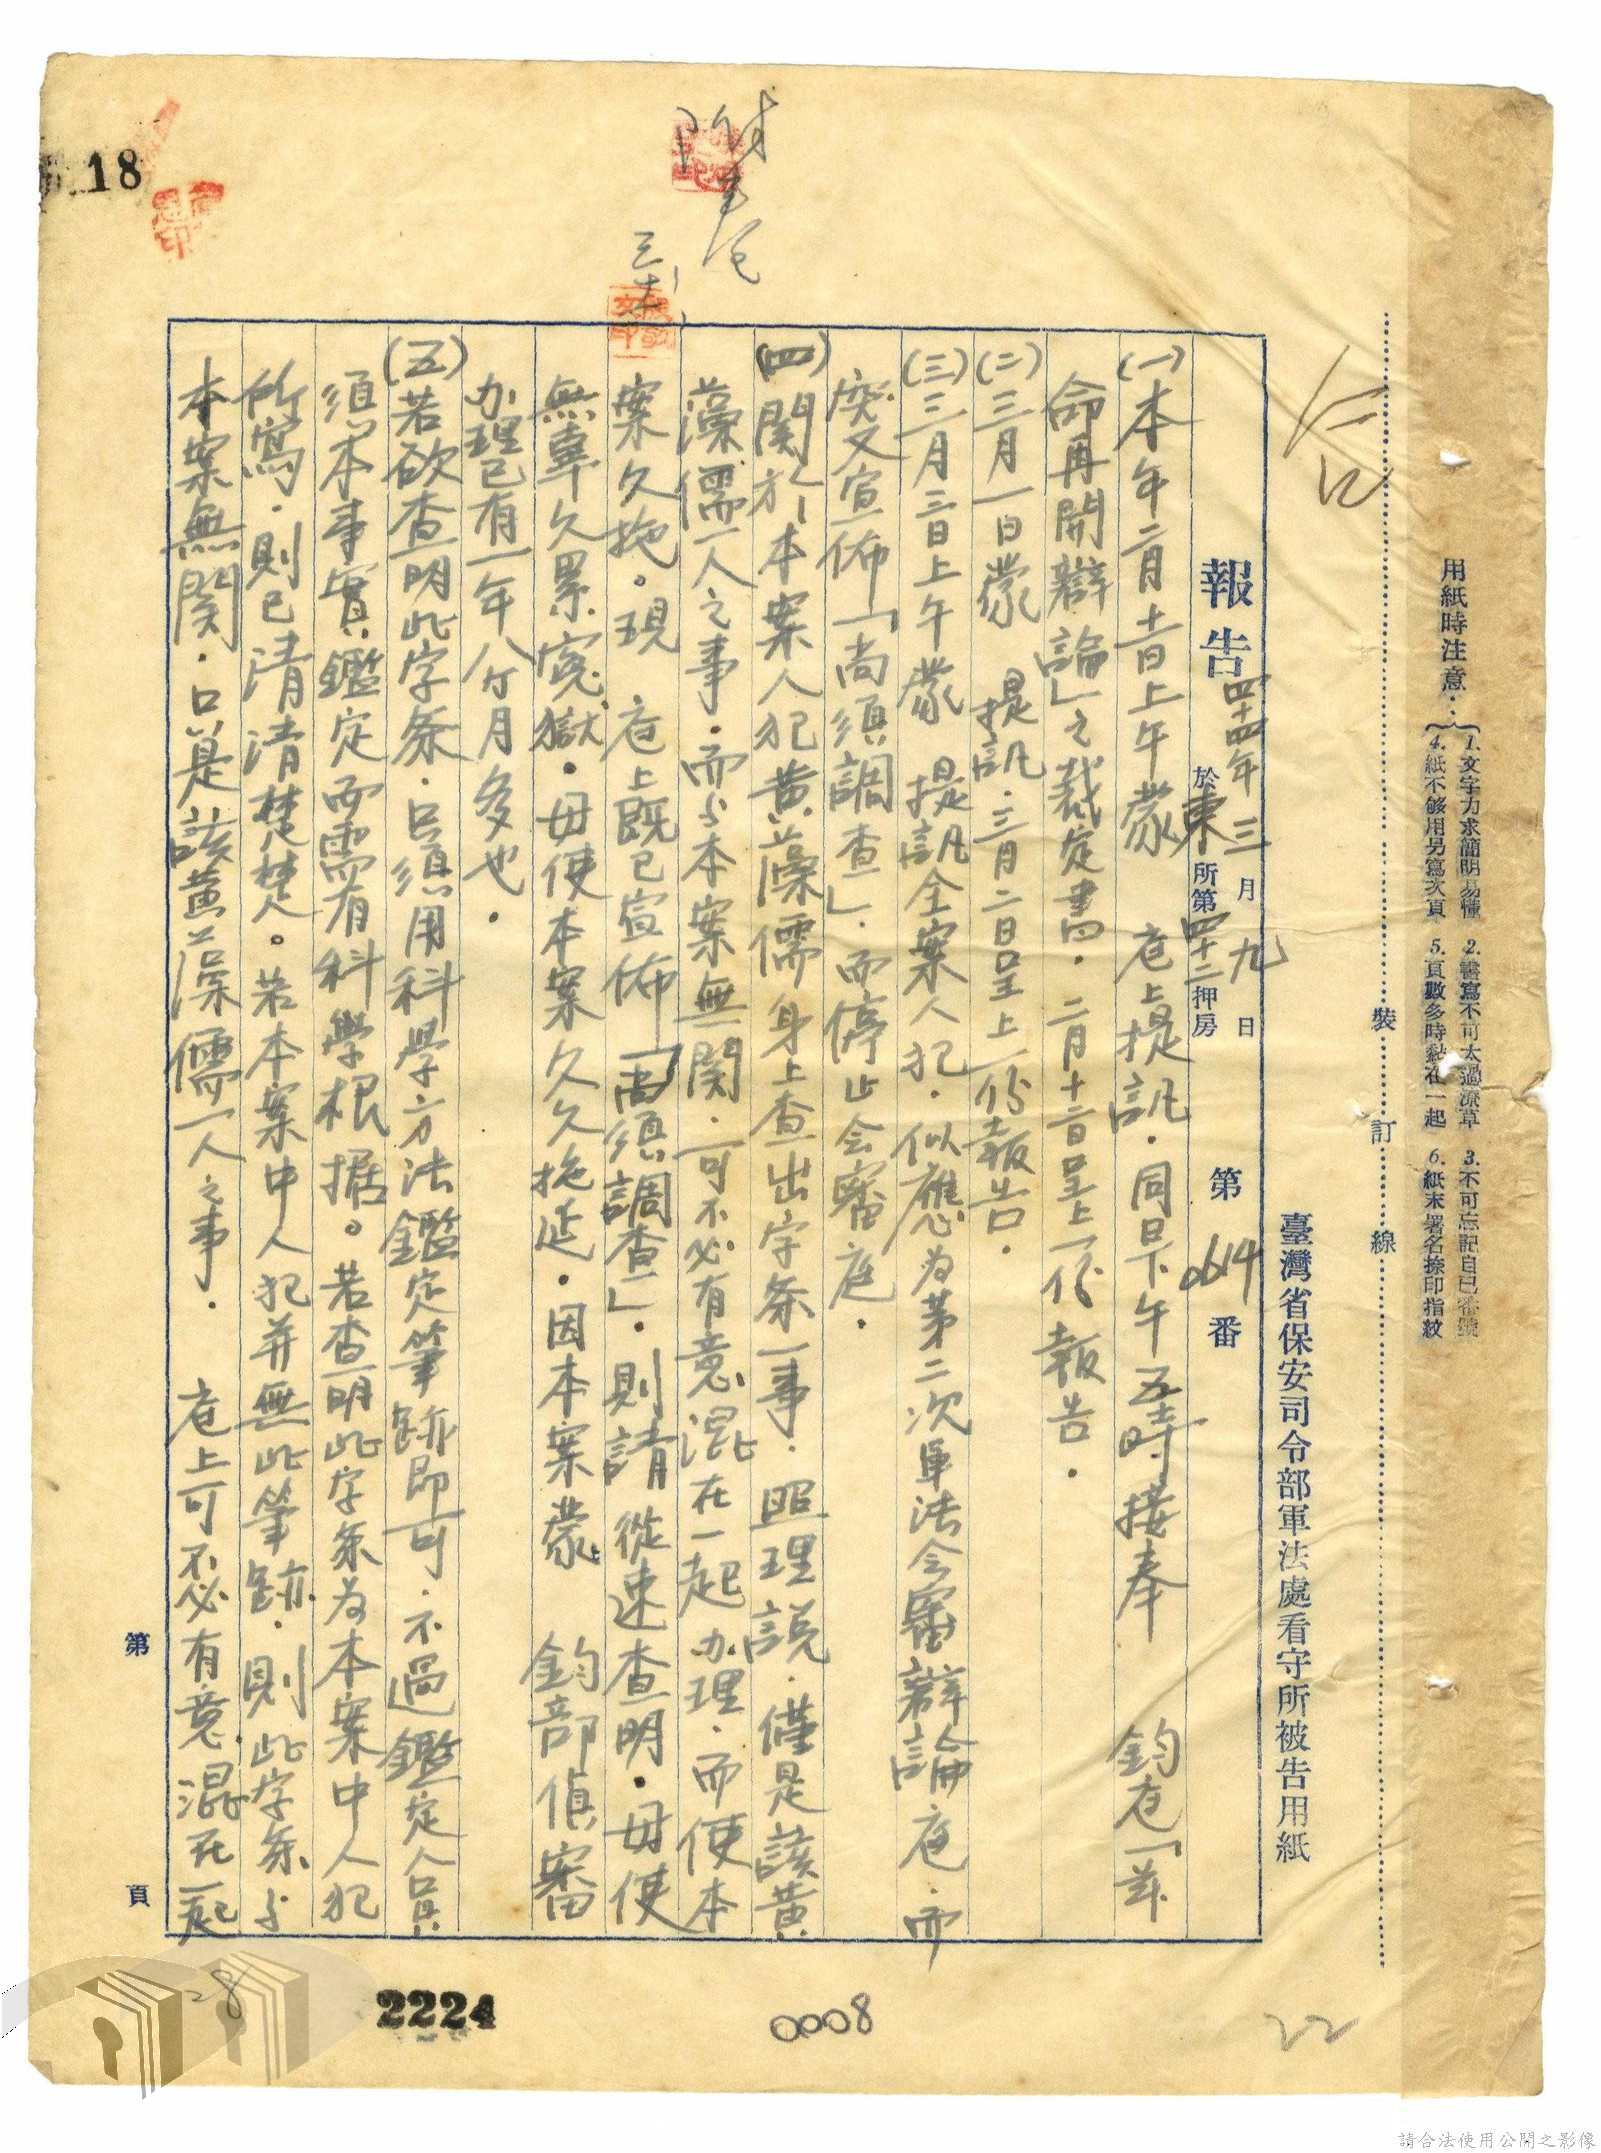 用紙時注意：
1.文字力求簡明易懂 2.書寫不可太過潦草 3.不可忘記自己番號
4.紙不够用另寫次頁 5.頁數多時黏在一起 6.紙末署名捺印指紋
裝 訂 線
臺灣省保安司令部軍法處看守所被告用紙
報告 四十四年三月九日 於東所第四十二押房 第0614番
(一)本年二月十一日上午蒙 庭上提訊．同日下午五時接奉 鈞庭「茲
命再開辯論」之裁定書四．二月十二日呈上一份報告．
(二)三月一日蒙 提訊．三月二日呈上一份報告．
(三)三月三日上午蒙 提訊全案人犯．似應为第二次軍法会審辯論庭．而
突又宣佈「尚須調查」．而停止会審庭．
(四)関於本案人犯黄藻儒身上查出字条一事．照理説．僅是該黄
藻儒一人之事．而与本案無関．可不必有意混在一起办理．而使本
案久拖。現 庭上既已宣佈「尚須調查」．則請從速查明．毋使
無辜久累寃獄．毋使本案久久拖延．因本案蒙 鈞部偵審
办理已有一年八个月多也．
(五)若欲查明此字条．只須用科學方法鑑定筆跡即可．不過鑑定人員
須本事實鑑定而需有科學根据。若查明此字条为本案中人犯
所寫．則已清清楚楚。若本案中人犯并無此筆跡．則此字条与
本案無関．只是該黄藻儒一人之事． 庭上可不必有意混在一起
第 頁
18
28
2224
0008
22
請合法使用公開之影像